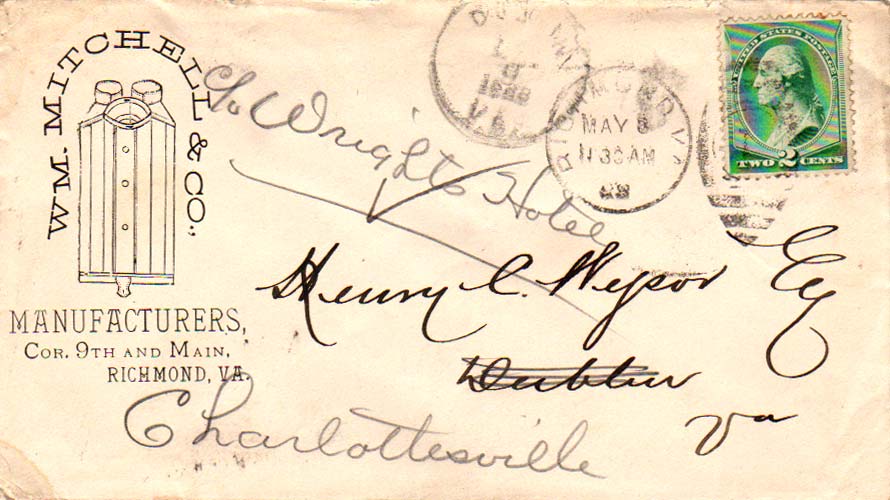 WM. MITCHELL & CO.,
MANUFACTURERS,
COR. 9TH AND MAIN,
RICHMOND, VA.
1888
VA.
RICHMOND VA
MAY 8
1130AM
UNITED STATES POSTAGE
TWO 2 CENTS
c/o Wright's Hotel
Henry C. Wysor Esq
Dublin
Va
Charlottesville